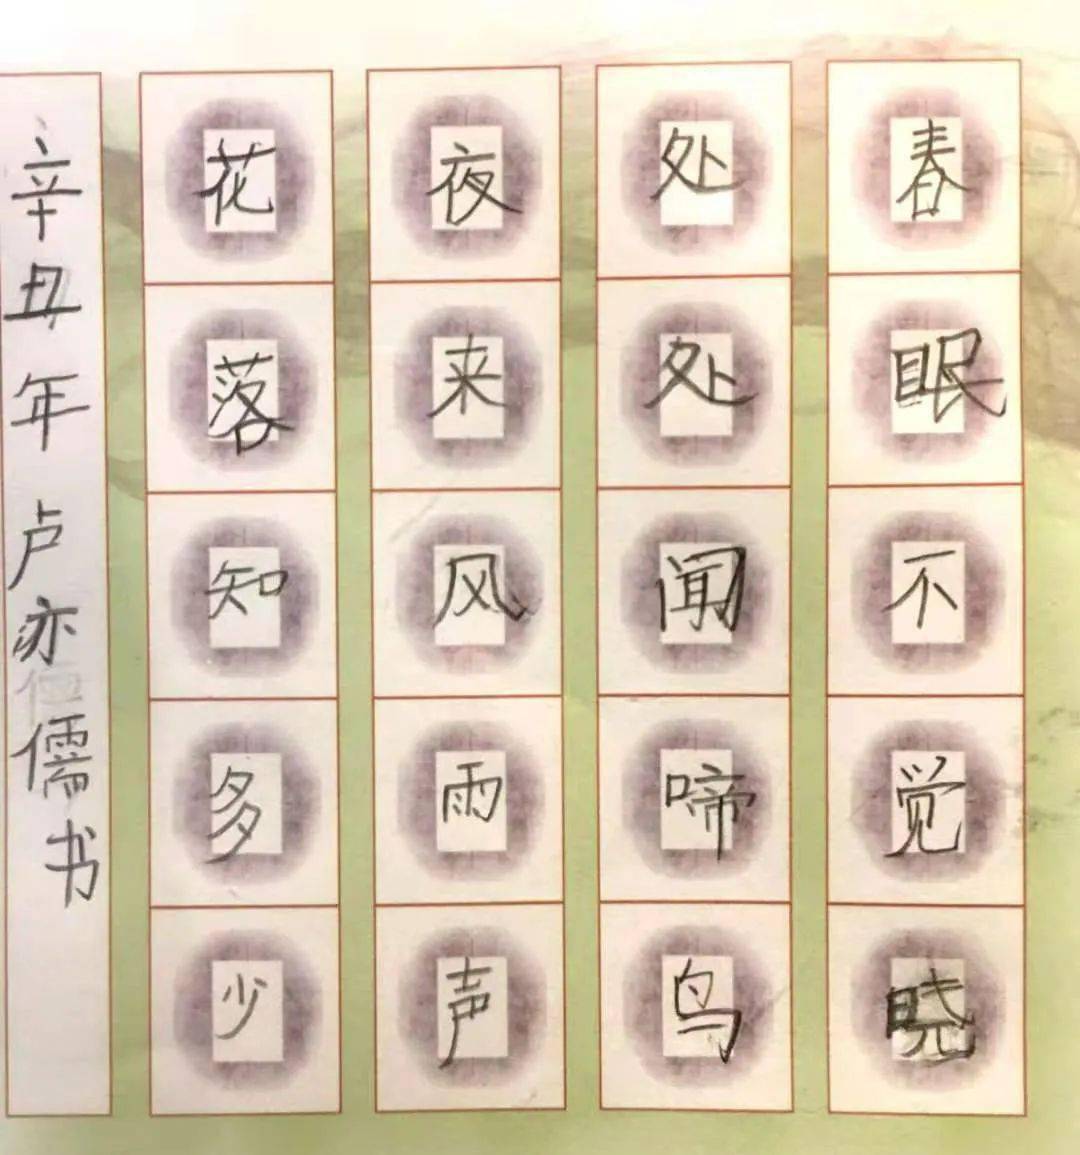 春眠不觉晓
处处闻啼鸟
夜来风雨声
花落知多少
辛丑年卢亦儒书